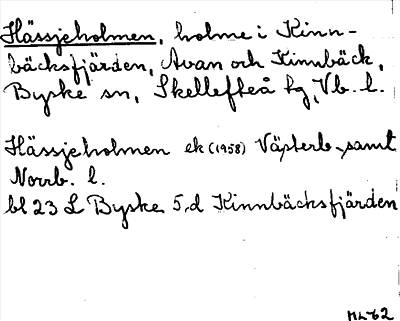 Hässjeholmen, holme i Kinn-
bäcksfjärden, Avan och Kinnbäck,
Byske sn, Skellefteå tg, Vb. l.
Hässjeholmen ek (1958) Västerb. samt
Norrb. l.
bl 23 L Byske 5,d Kinnbäcksfjärden